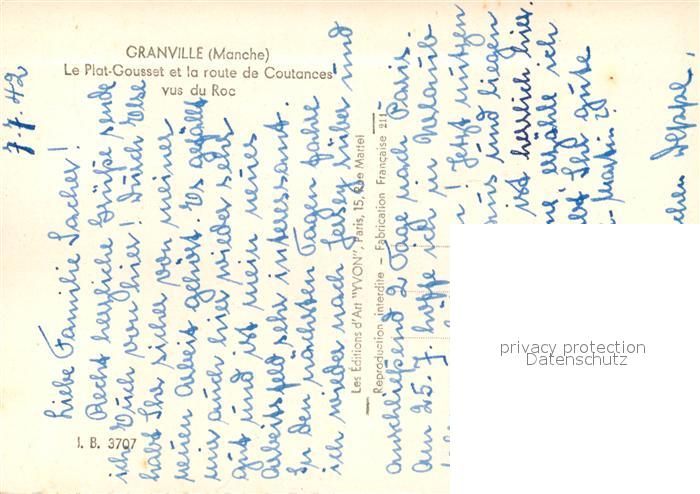 GRANVILLE (Manche)
Le Plat-Gousset et la route de Coutances
vus du Roc
7.7.42
Liebe Familie Sacher!
Recht herzliche Grüße sende
ich Euch von hier! Durch Else
habt Ihr sicher von meiner
neuen Arbeit gehört. Es gefällt
mir auch hier wieder sehr
gut und ist mein neues
Arbeitsfeld sehr interessant.
In den nächsten Tagen fahre
ich wieder nach Jersey rüber und
Les Éditions d'Art "YVON", Paris, 15, Rue Martel
Reproduction interdite - Fabrication Française 211
anschließend 2 Tage nach Paris.
Am 25.7. hoffe ich in Urlaub
! Jetzt nutzen
uns und liegen
ist herrlich hier.
erzähle ich
Ihr gute
I. B. 3707
privacy protection
Datenschutz